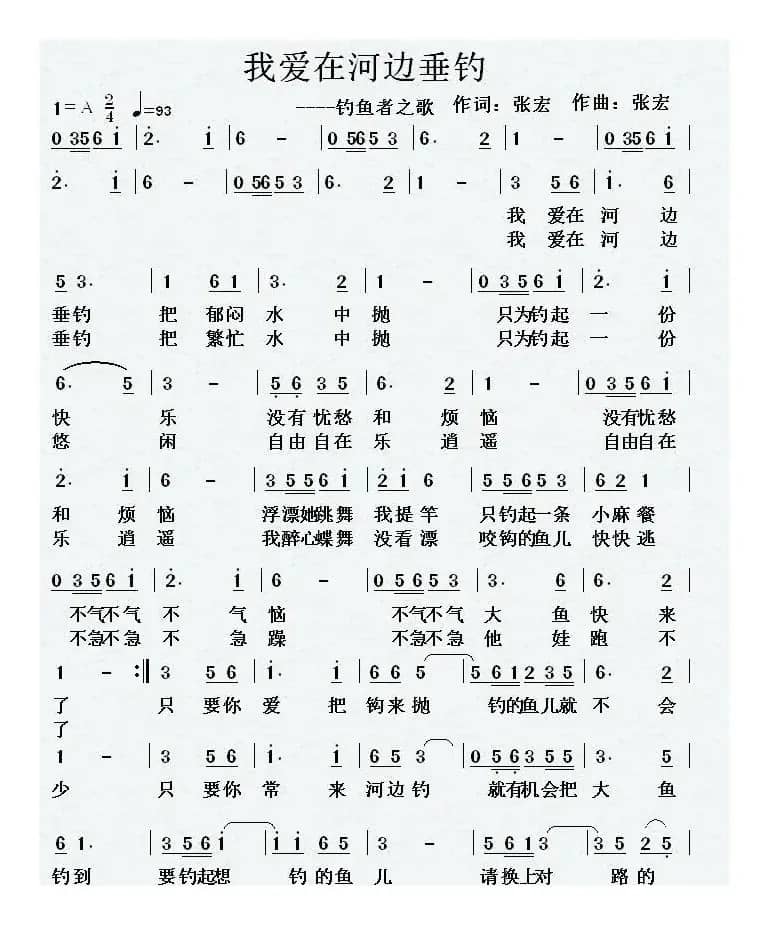 我爱在河边垂钓
1=A 2/4 ♩=93 ----钓鱼者之歌 作词：张宏 作曲：张宏
0 3561̇ | 2̇. 1̇ | 6 - | 0 5653 | 6. 2 | 1 - | 0 3561̇ |
2̇. 1̇ | 6 - | 0 5653 | 6. 2 | 1 - | 3 56 | 1̇. 6 |
我 爱在 河 边
我 爱在 河 边
5 3. | 1 61 | 3. 2 | 1 - | 0 3561̇ | 2̇. 1̇ |
垂钓 把 郁闷 水 中 抛 只为钓起 一 份
垂钓 把 繁忙 水 中 抛 只为钓起 一 份
6. 5 | 3 - | 5̣6̣ 35 | 6. 2 | 1 - | 0 3561̇ |
快 乐 没有 忧愁 和 烦 恼 没有忧愁
悠 闲 自由 自在 乐 逍 遥 自由自在
2̇. 1̇ | 6 - | 35561̇ | 2̇1̇ 6 | 55653 | 62 1 |
和 烦 恼 浮漂她跳舞 我提 竿 只钓起一条 小麻 餐
乐 逍 遥 我醉心蝶舞 没看 漂 咬钩的鱼儿 快快 逃
0 3561̇ | 2̇. 1̇ | 6 - | 0 5653 | 3. 6 | 6. 2 |
不气不气 不 气 恼 不气不气 大 鱼 快 来
不急不急 不 急 躁 不急不急 他 娃 跑 不
1 - :‖ 3 56 | 1̇. 1̇ | 66 5 | 561235 | 6. 2 |
了 只 要你 爱 把 钩来 抛 钓的鱼儿就 不 会
了
1 - | 3 56 | 1̇. 1̇ | 65 3 | 05̣6̣355 | 3. 5 |
少 只 要你 常 来 河边 钓 就有机会把 大 鱼
61. | 3561̇ | 1̇1̇ 65 | 3 - | 5613 | 35 25̣ |
钓到 要钓起想 钓的 鱼 儿 请换上对 路的